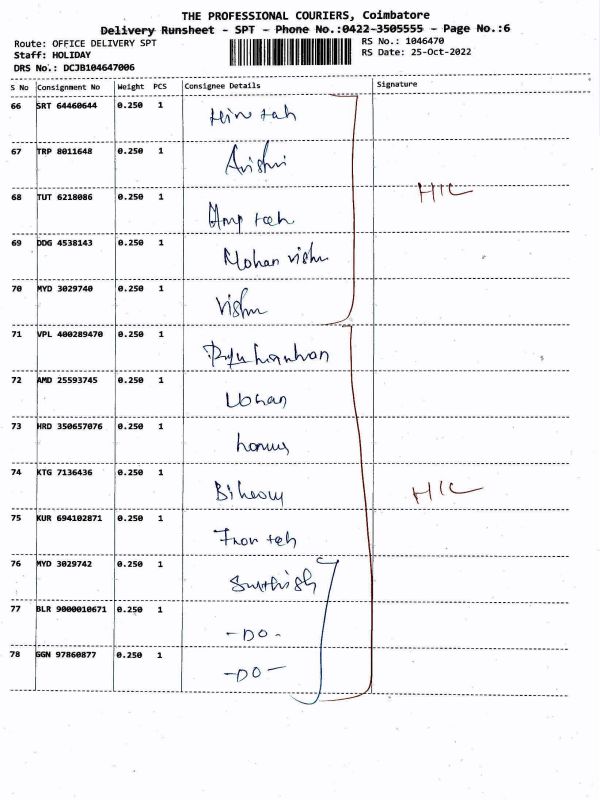 THE PROFESSIONAL COURIERS, Coimbatore
Delivery Runsheet - SPT - Phone No.:0422-3505555 - Page No.:6
Route: OFFICE DELIVERY SPT
RS No.: 1046470
Staff: HOLIDAY
RS Date: 25-Oct-2022
DRS No.: DCJB104647006
S No Consignment No Weight PCS Consignee Details Signature
66 SRT 64460644 0.250 1
67 TRP 8011648 0.250 1
68 TUT 6218086 0.250 1 H/C
69 DDG 4538143 0.250 1 Mohan vishn
70 MYD 3029740 0.250 1 Vishn
71 VPL 400289470 0.250 1
72 AMD 25593745 0.250 1
73 HRD 350657076 0.250 1
74 KTG 7136436 0.250 1 H/C
75 KUR 694102871 0.250 1
76 MYD 3029742 0.250 1
77 BLR 9000010671 0.250 1 -DO-
78 GGN 97860877 0.250 1 -DO-